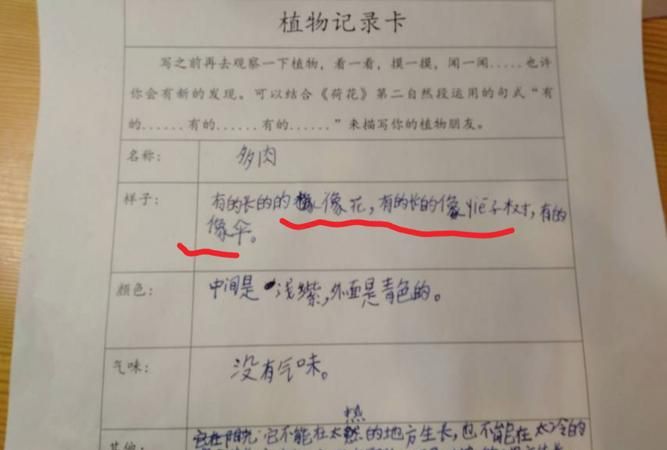 植物记录卡
写之前再去观察一下植物，看一看，摸一摸，闻一闻.....也许
你会有新的发现。可以结合《荷花》第二自然段运用的句式“有
的......有的......有的......”来描写你的植物朋友。
名称：
多肉
样子：
有的长的的像花，有的长的像yiē子树，有的
像伞。
颜色：
中间是浅紫，外面是青色的。
气味：
没有气味。
其他：
热
它不能在太的地方生长，也不能在太冷的